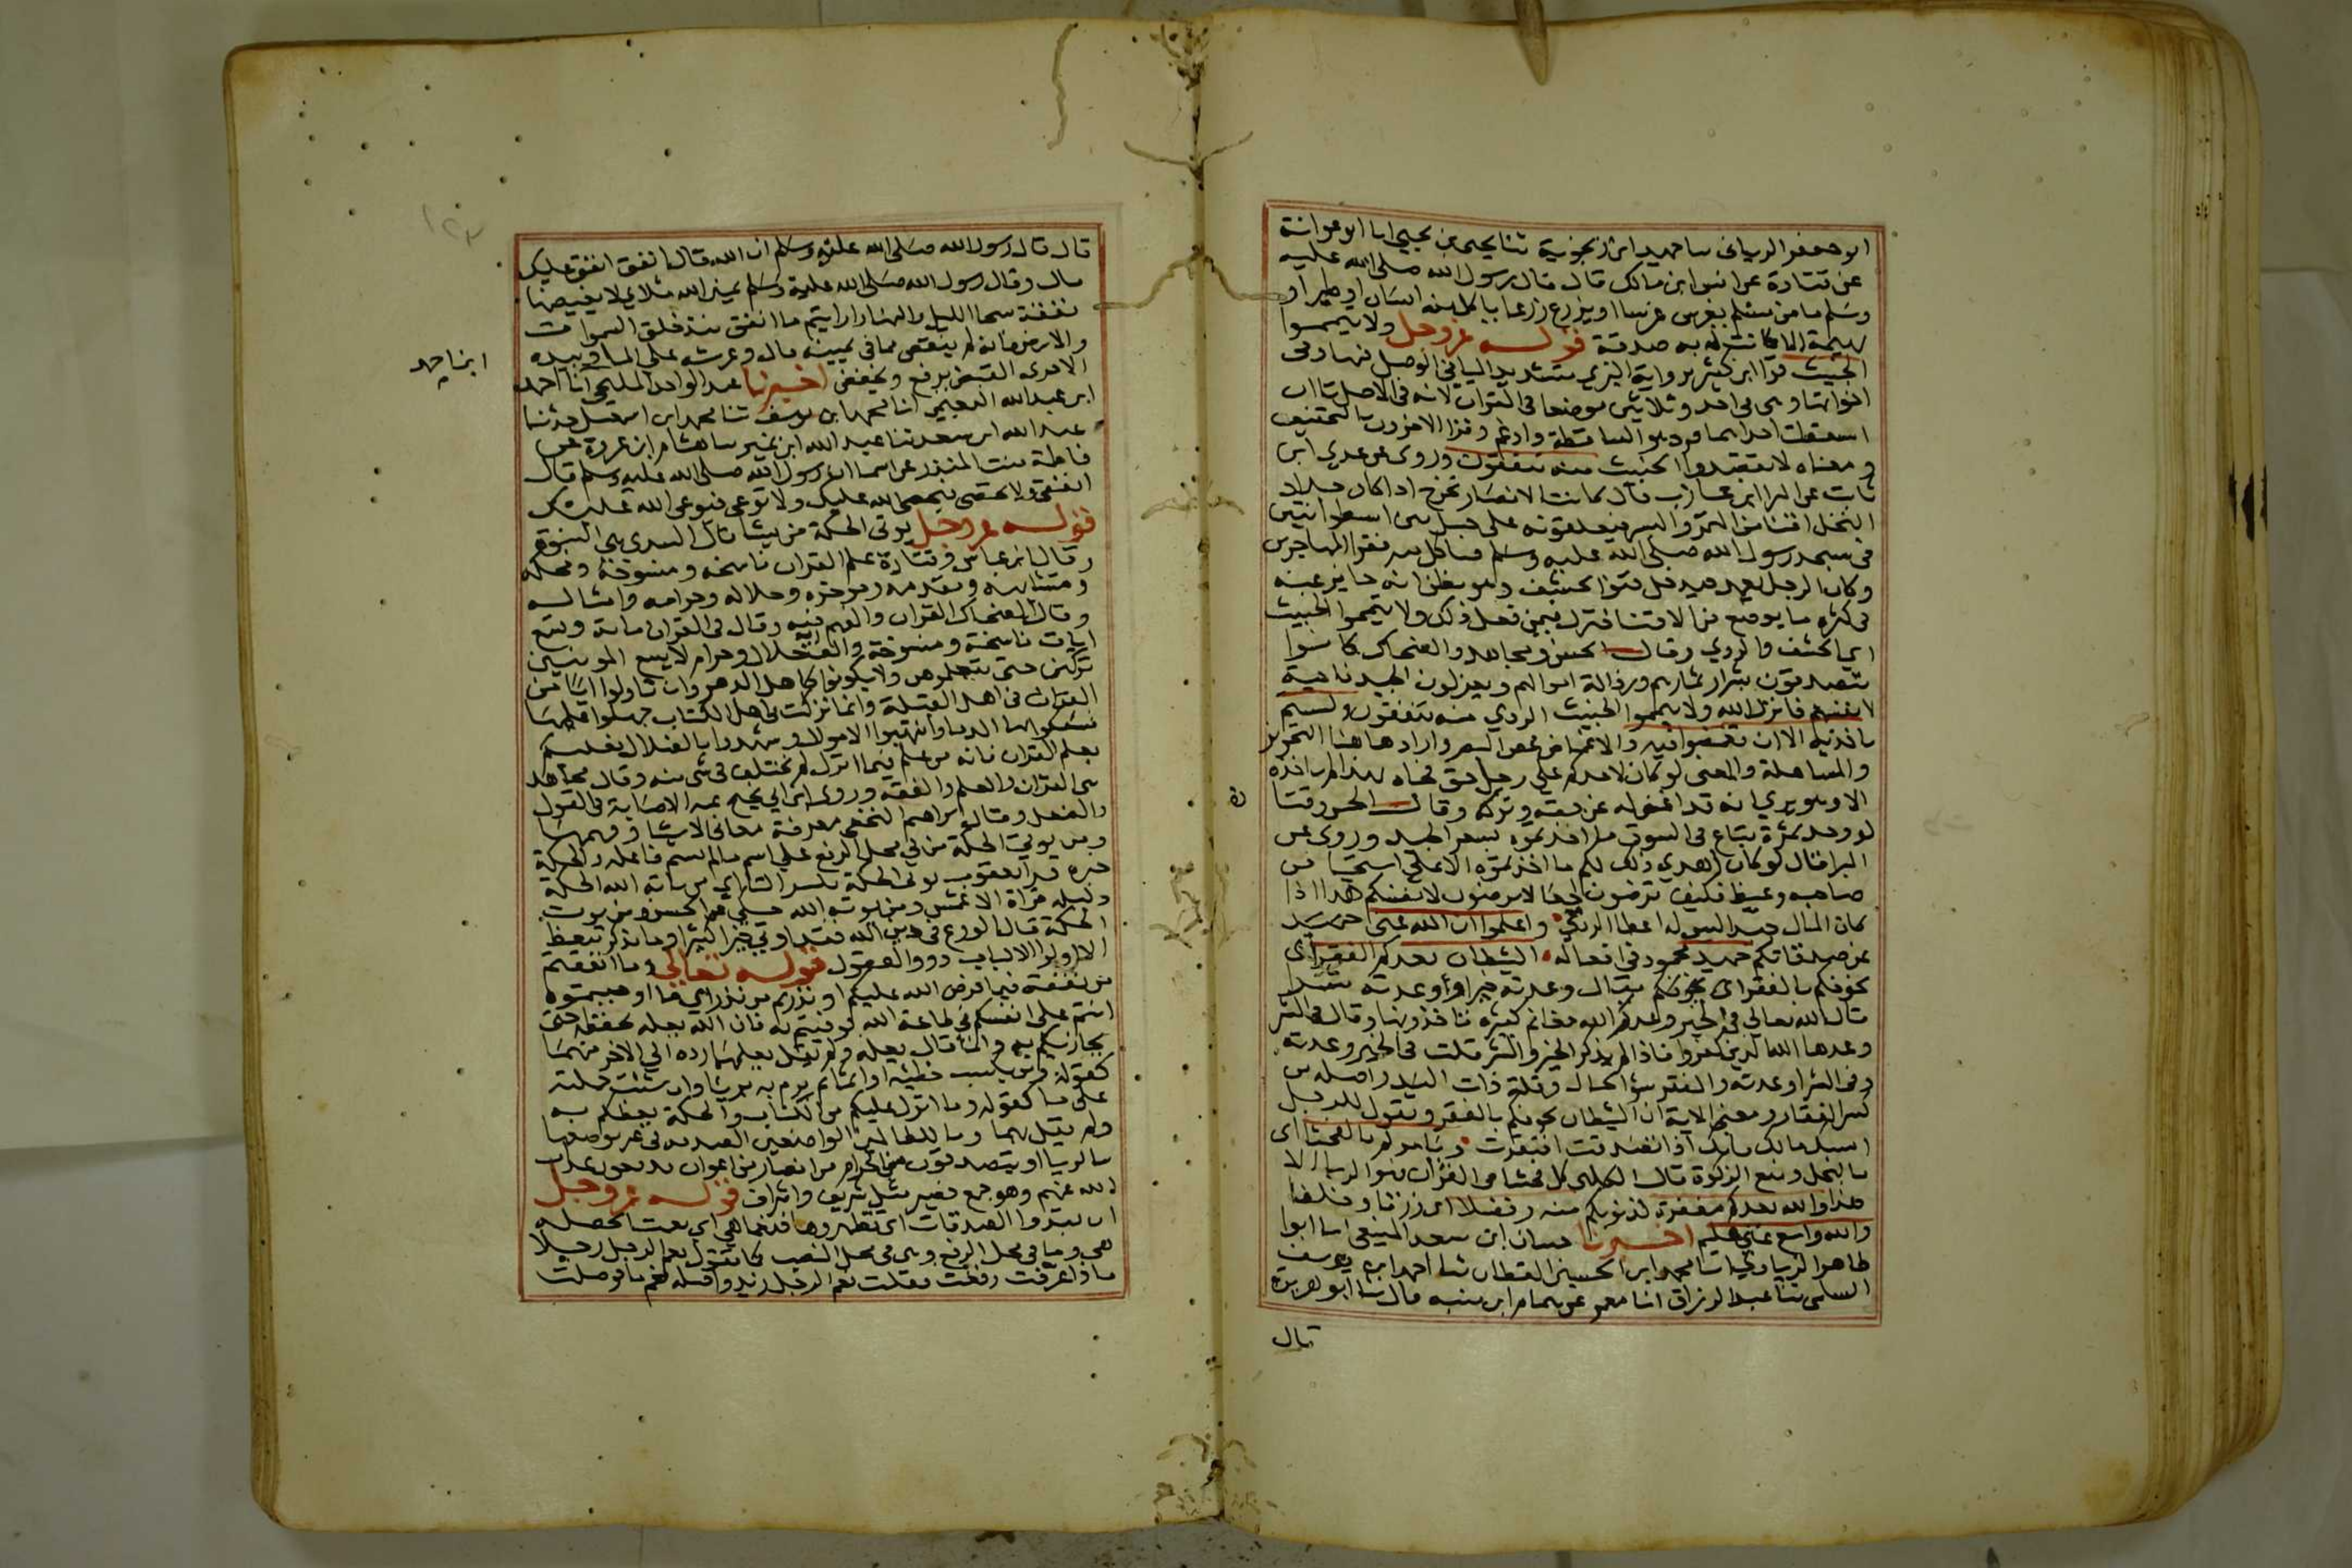 ابو جعفر الرياني سا حميد ابن زنجوية ثنا يحيى بن يحيى انا ابو عوانة
عن قتادة عن انس ابن مالك قال قال رسول الله صلى الله عليه
وسلم ما من مسلم يغرس غرسا او يزرع زرعا فياكل منه انسان او طير او
بهيمة الا كانت له به صدقة قوله عز وجل ولا تيمموا
الخبيث قرا ابن كثير برواية البزي بتشديد التا في الوصل فيها وفي
اخواتها وهي في احد وثلاثين موضعا في القران لانه في الاصل تاان
اسقطت احداهما فرد هو الساقطة وادغم وقرا الاخرون بالتخفيف
و معناه لا تقصدوا الخبيث منه تنفقون وروي عن عدي ابن
ثابت عن البرا ابن عازب قال كانت الانصار تخرج اذا كان جداد
النخل اقنا من التمر والبسر فيعلقونه على حبل بين اسطوانتين
في مسجد رسول الله صلى الله عليه وسلم فياكل منه فقرا المهاجرين
وكان الرجل يعمد فيدخل قنو الحشف وهو يظن انه جايز عنه
في كثرة ما يوضع من الاقنا فنزل فيمن فعل ذلك ولا تيمموا الخبيث
اي الحشف والردي وقال الحسن ومجاهد والضحاك كانوا
يتصدقون بشرار ثمارهم ورذالة اموالهم ويعزلون الجيد ناحية
لانفسهم فانزل الله ولا تيمموا الخبيث الردي منه تنفقون ولستم
باخذيه الا ان تغمضوا فيه والاغماض غض البصر واراد هاهنا التجويز
والمساهلة والمعنى لو كان لاحدكم على رجل حق فجاه بهذا لم ياخذه
الا وهو يري انه قد اغمض له عن حقه وتركه وقال الحسن وقتادة
لو وجدتموه يباع في السوق ما اخذتموه بسعر الجيد وروي عن
البرا قال لو كان اهدي ذلك لكم ما اخذتموه الا على استحيا من
صاحبه وغيظ فكيف ترضون لي ما لا ترضون لانفسكم هذا اذا
كان المال جيد ليس له اعطا الردي واعلموا ان الله غني حميد
عن صدقاتكم حميد محمود في افعاله الشيطان يعدكم الفقر اي
يخوفكم بالفقر اي يخوفكم يقال وعدته خيرا واوعدته شرا
قال الله تعالى في الخير وعدكم الله مغانم كثيرة تاخذونها وقال في الشر
وعدها الله الذين كفروا فاذا لم يذكر الخير والشر قلت في الخير وعدته
وفي الشر اوعدته والفقر سو الحال وقلة ذات اليد واصله من
كسر الفقار ومعنى الاية ان الشيطان يخوفكم بالفقر ويقول للرجل
امسك مالك فانك اذا تصدقت افتقرت ويامركم بالفحشا اي
بالبخل ومنع الزكوة قال الكلبي كل فحشا في القران فهو الزنا الا
هذا والله يعدكم مغفرة لذنوبكم منه وفضلا اي رزقا وخلفا
والله واسع غني عليم اخبرنا حسان ابن سعد المنيعي انا ابو
طاهر الزيادي انا محمد ابن الحسين القطان ثنا احمد ابن يوسف
السلمي ثنا عبد الرزاق انا معمر عن همام ابن منبه قال ثنا ابو هريرة
قال
قال قال رسول الله صلى الله عليه وسلم ان الله قال انفق انفق عليك
قال وقال رسول الله صلى الله عليه وسلم يمين الله ملاي لا يغيضها
نفقة سحا الليل والنهار ارايتم ما انفق منذ خلق السموات
والارض فانه لم ينقص مما في يمينه قال وعرشه على الما وبيده
الاخرى القبض يرفع ويخفض اخبرنا عبد الواحد المليحي انا احمد
ابن عبد الله النعيمي انا محمد بن يوسف ثنا محمد ابن اسمعيل حدثنا
عبد الله ابن سعد ثنا عبد الله ابن نمير سا هشام ابن عروة عن
فاطمة بنت المنذر عن اسما ان رسول الله صلى الله عليه وسلم قال
انفقي ولا تحصي فيحصي الله عليك ولا توعي فيوعي الله عليك
قوله عز وجل يوتي الحكمة من يشا قال السدي هي النبوة
وقال ابن عباس وقتادة علم القران ناسخه ومنسوخه ومحكمه
ومتشابهه ومقدمه وموخره وحلاله وحرامه وامثاله
وقال الضحاك القران والفهم فيه وقال في القران ماية وتسع
ايات ناسخة ومنسوخة والف حلال وحرام لا يسع المومنين
تركهن حتى يتعلموهن ولا يكونوا كاهل النهروان تاولوا ايات من
القران في اهل القبلة وانما نزلت في اهل الكتاب جهلوا علمها
فسفكوا بها الدما وانتهبوا الاموال وشهدوا بالضلال فعليكم
بعلم القران فانه من علم فيما انزل لم يختلف في شي منه وقال مجاهد
هي القران والعلم والفقه وروى ابن ابي نجيح عنه الاصابة في القول
والفعل وقال ابراهيم النخعي معرفة معاني الاشيا وفهمها
ومن يوتي الحكمة من في محل الرفع على اسم ما لم يسم فاعله والحكمة
خبره قرا يعقوب يوتي الحكمة بكسر التا اي من ياته الله الحكمة
دليله قراة الاعمش ومن يوته الله حكي عن الحسن ومن يوت
الحكمة قال الورع في دين الله فقد اوتي خيرا كثيرا وما يذكر يتعظ
الا اولوا الالباب ذوو العقول قوله تعالى وما انفقتم
من نفقة فيما فرض الله عليكم او نذرتم من نذر اي ما اوجبتموه
انتم على انفسكم في طاعة الله فوفيتم به فان الله يعلمه يحفظه حتى
يجازيكم به وانما قال يعلمه ولم يقل يعلمها رده الى الاخر منهما
كقوله ومن يكسب خطيئة او اثما ثم يرم به بريئا وان شئت حملته
على ما كقوله وما انزل عليكم من الكتاب والحكمة يعظكم به
ولم يقل بهما وما للظالمين الواضعين الصدقة في غير موضعها
بالريا او يتصدقون من الحرام من انصار من اعوان يدفعون عذاب
الله عنهم وهو جمع نصير مثل شريف واشراف قوله عز وجل
ان تبدوا الصدقات اي تظهروها فنعما هي اي نعمت الخصلة
هي وما في محل الرفع وهي في محل النصب كما تقول نعم الرجل رجلا
فاذا عرفت رفعت فقلت نعم الرجل زيد واصله نعم ما فوصلت